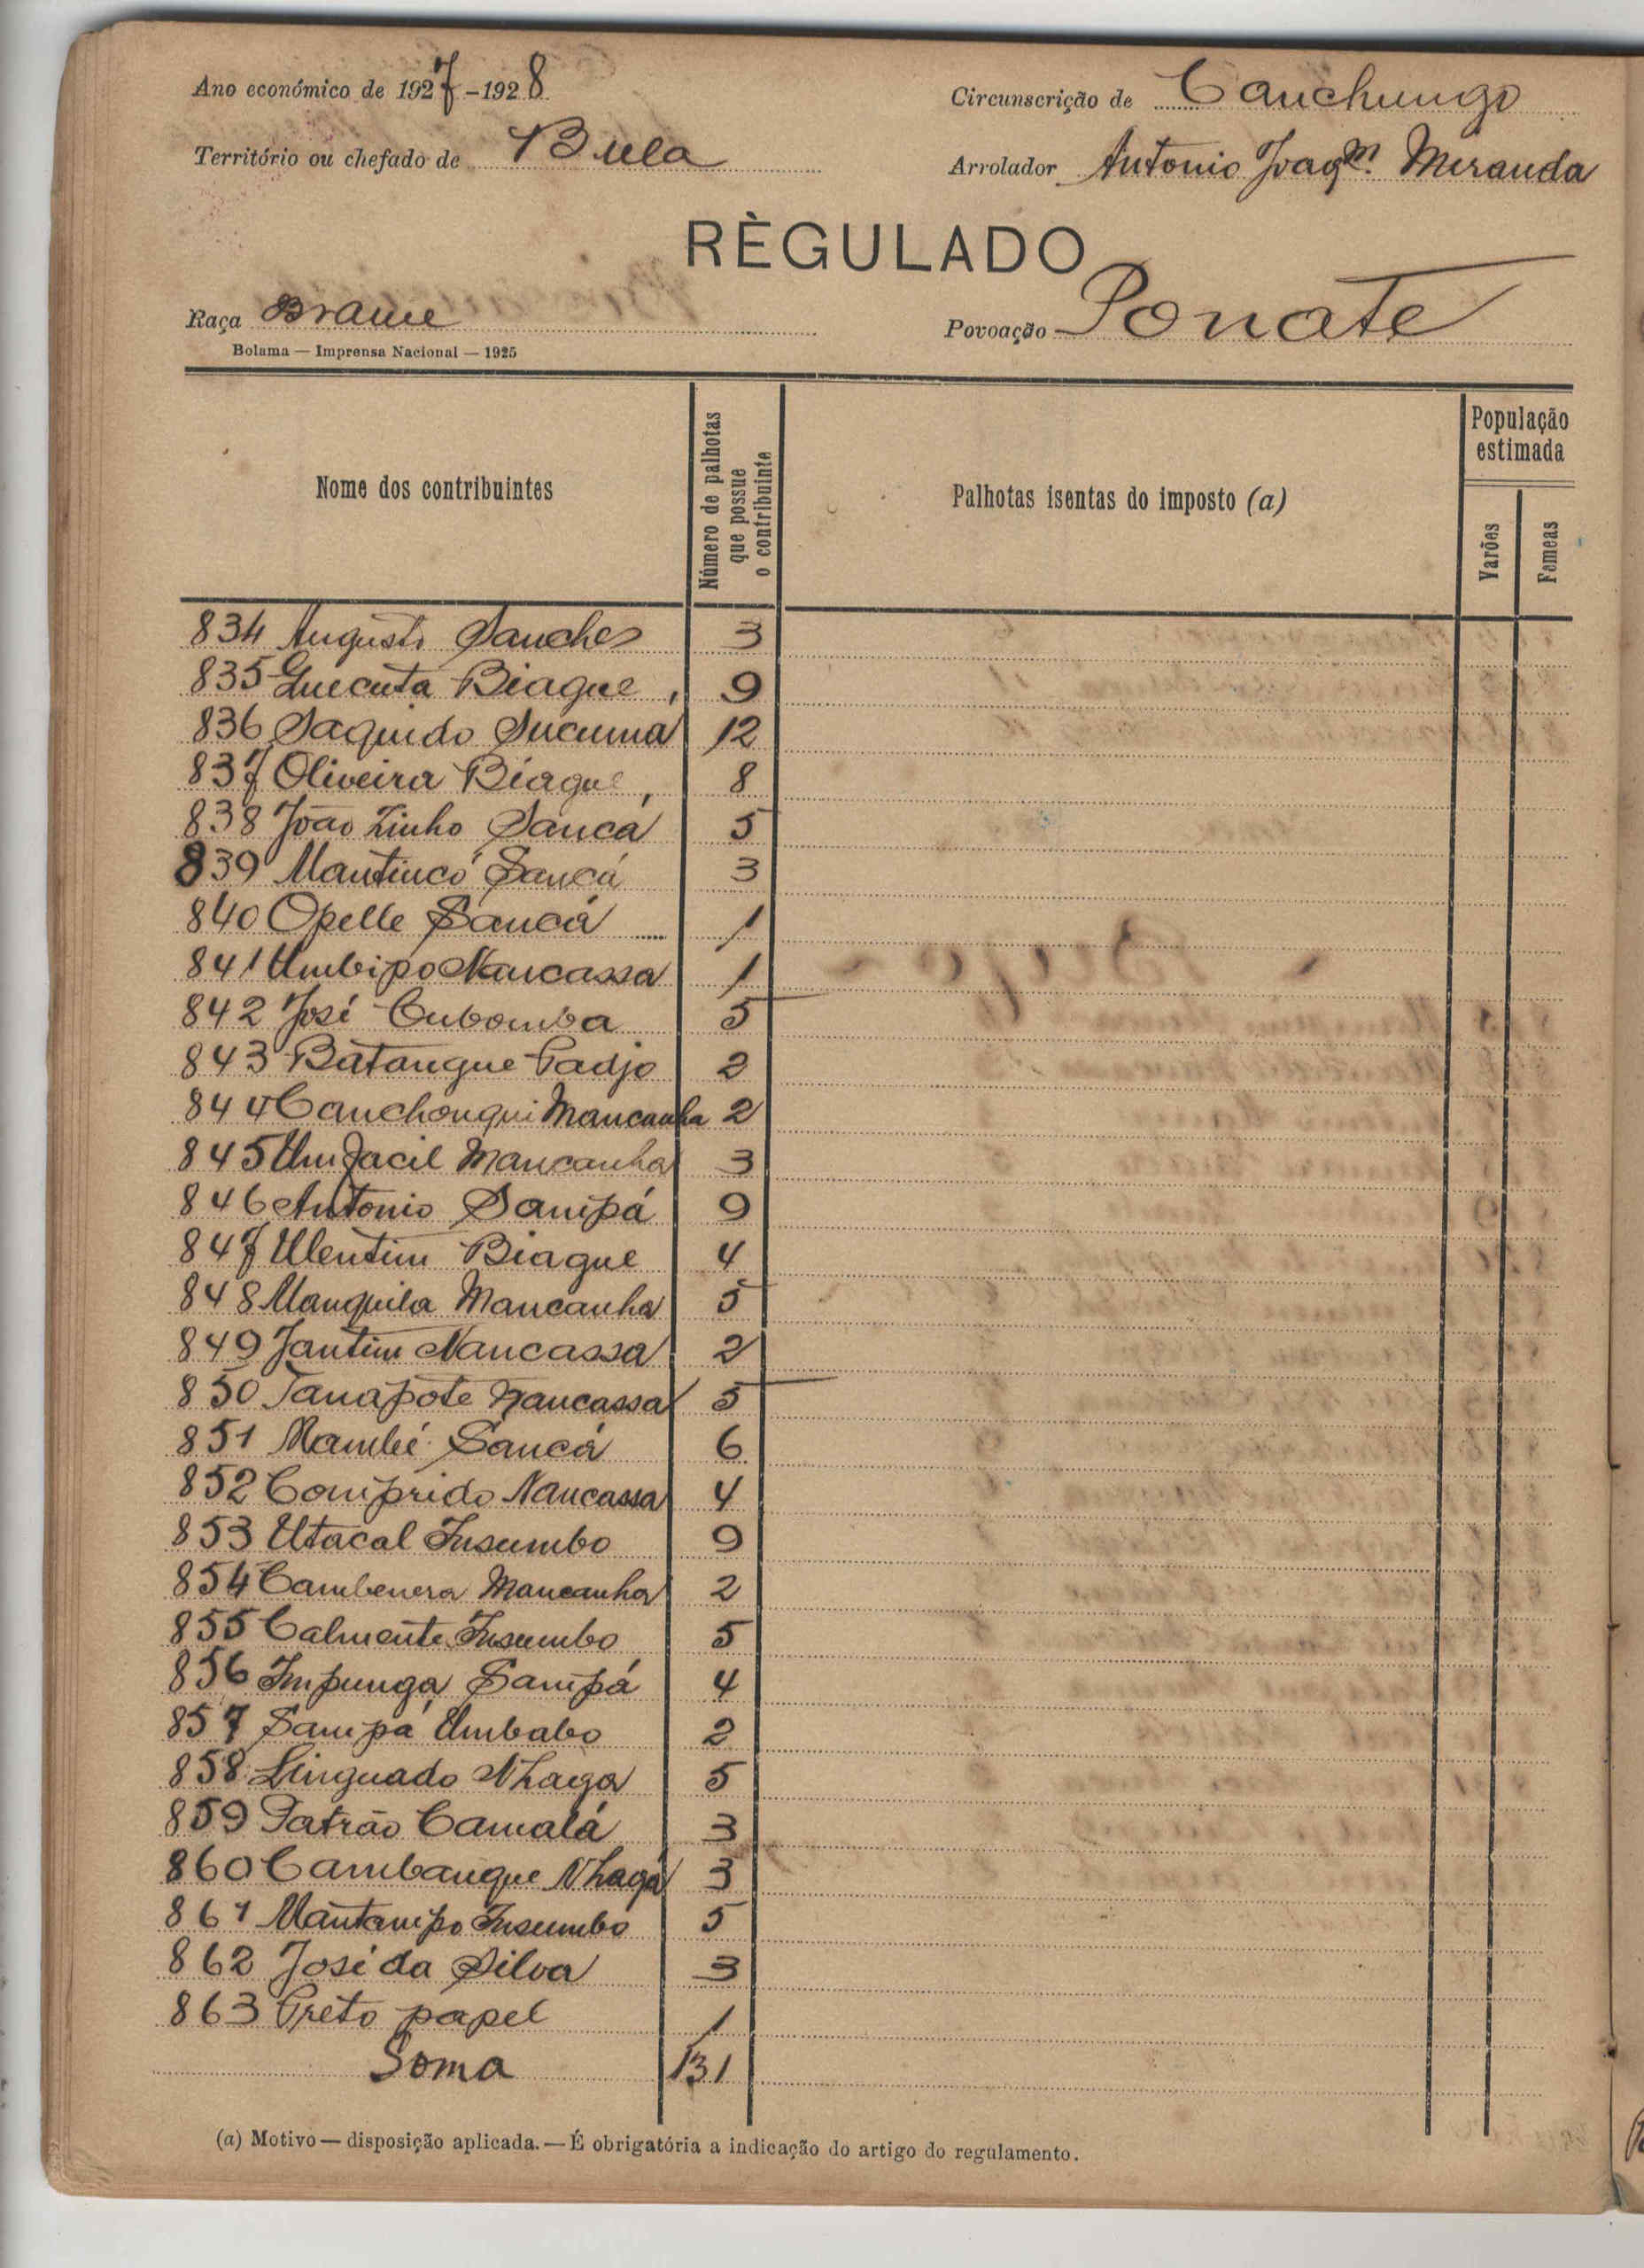 Ano económico de 1927-1928
Circunscrição de Canchungo
Território ou chefado de Bula
Arrolador Antonio Joaqm. Miranda
RÈGULADO
Raça Brame
Povoação Ponate
Bolama — Imprensa Nacional — 1925
Nome dos contribuintes
Número de palhotas que possue o contribuinte
Palhotas isentas do imposto (a)
População estimada
Varões
Femeas
834 Augusto Sanches 3
835 Quecuta Biague, 9
836 Saquido Sucuma 12
837 Oliveira Biague, 8
838 João Zinho Sancá 5
839 Mantincó Sancá 3
840 Opelle Sancá 1
841 Umbipo Nancassa 1
842 José Cubomba 5
843 Batangue Padjo 2
844 Canchongui Mancanha 2
845 Umfacil Mancanha 3
846 Antonio Sampá 9
847 Ulentim Biague 4
848 Manquila Mancanha 5
849 Jantim Nancassa 2
850 Tanapote Nancassa 5
851 Mambé Sancá 6
852 Comprido Nancassa 4
853 Utacal Insumbo 9
854 Cambenera Mancanha 2
855 Calmente Insumbo 5
856 Impunga Sampá 4
857 Sampá Umbabo 2
858 Linguado Nhaga 5
859 Patrão Camalá 3
860 Cambangue Nhagá 3
861 Mantampo Insumbo 5
862 José da Silva 3
863 Preto papel 1
Soma 131
(a) Motivo — disposição aplicada. — É obrigatória a indicação do artigo do regulamento.